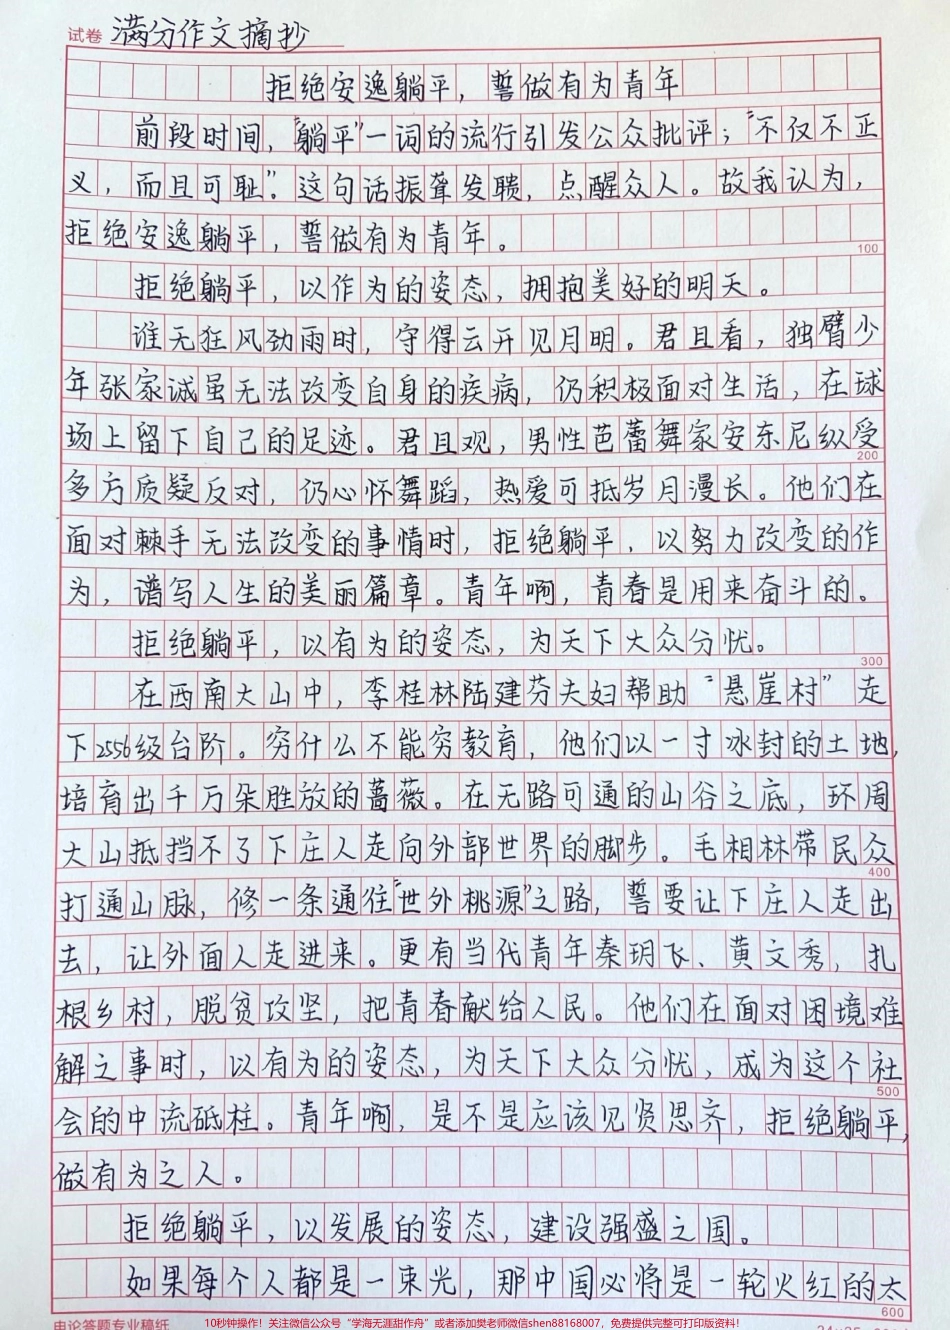 试卷 满分作文摘抄
拒绝安逸躺平，誓做有为青年
前段时间，“躺平”一词的流行引发公众批评；“不仅不正
义，而且可耻”。这句话振聋发聩，点醒众人。故我认为，
拒绝安逸躺平，誓做有为青年。
100
拒绝躺平，以作为的姿态，拥抱美好的明天。
谁无狂风劲雨时，守得云开见月明。君且看，独臂少
年张家诚虽无法改变自身的疾病，仍积极面对生活，在球
场上留下自己的足迹。君且观，男性芭蕾舞家安东尼纵受
200
多方质疑反对，仍心怀舞蹈，热爱可抵岁月漫长。他们在
面对棘手无法改变的事情时，拒绝躺平，以努力改变的作
为，谱写人生的美丽篇章。青年啊，青春是用来奋斗的。
拒绝躺平，以有为的姿态，为天下大众分忧。
300
在西南大山中，李桂林陆建芬夫妇帮助“悬崖村”走
下2556级台阶。穷什么不能穷教育，他们以一寸冰封的土地，
培育出千万朵胜放的蔷薇。在无路可通的山谷之底，环周
大山抵挡不了下庄人走向外部世界的脚步。毛相林带民众
400
打通山脉，修一条通往“世外桃源”之路，誓要让下庄人走出
去，让外面人走进来。更有当代青年秦玥飞、黄文秀，扎
根乡村，脱贫攻坚，把青春献给人民。他们在面对困境难
解之事时，以有为的姿态，为天下大众分忧，成为这个社
500
会的中流砥柱。青年啊，是不是应该见贤思齐，拒绝躺平，
做有为之人。
拒绝躺平，以发展的姿态，建设强盛之国。
如果每个人都是一束光，那中国必将是一轮火红的太
600
申论答题专业稿纸
10秒钟操作！关注微信公众号“学海无涯甜作舟”或者添加樊老师微信shen88168007，免费提供完整可打印版资料！